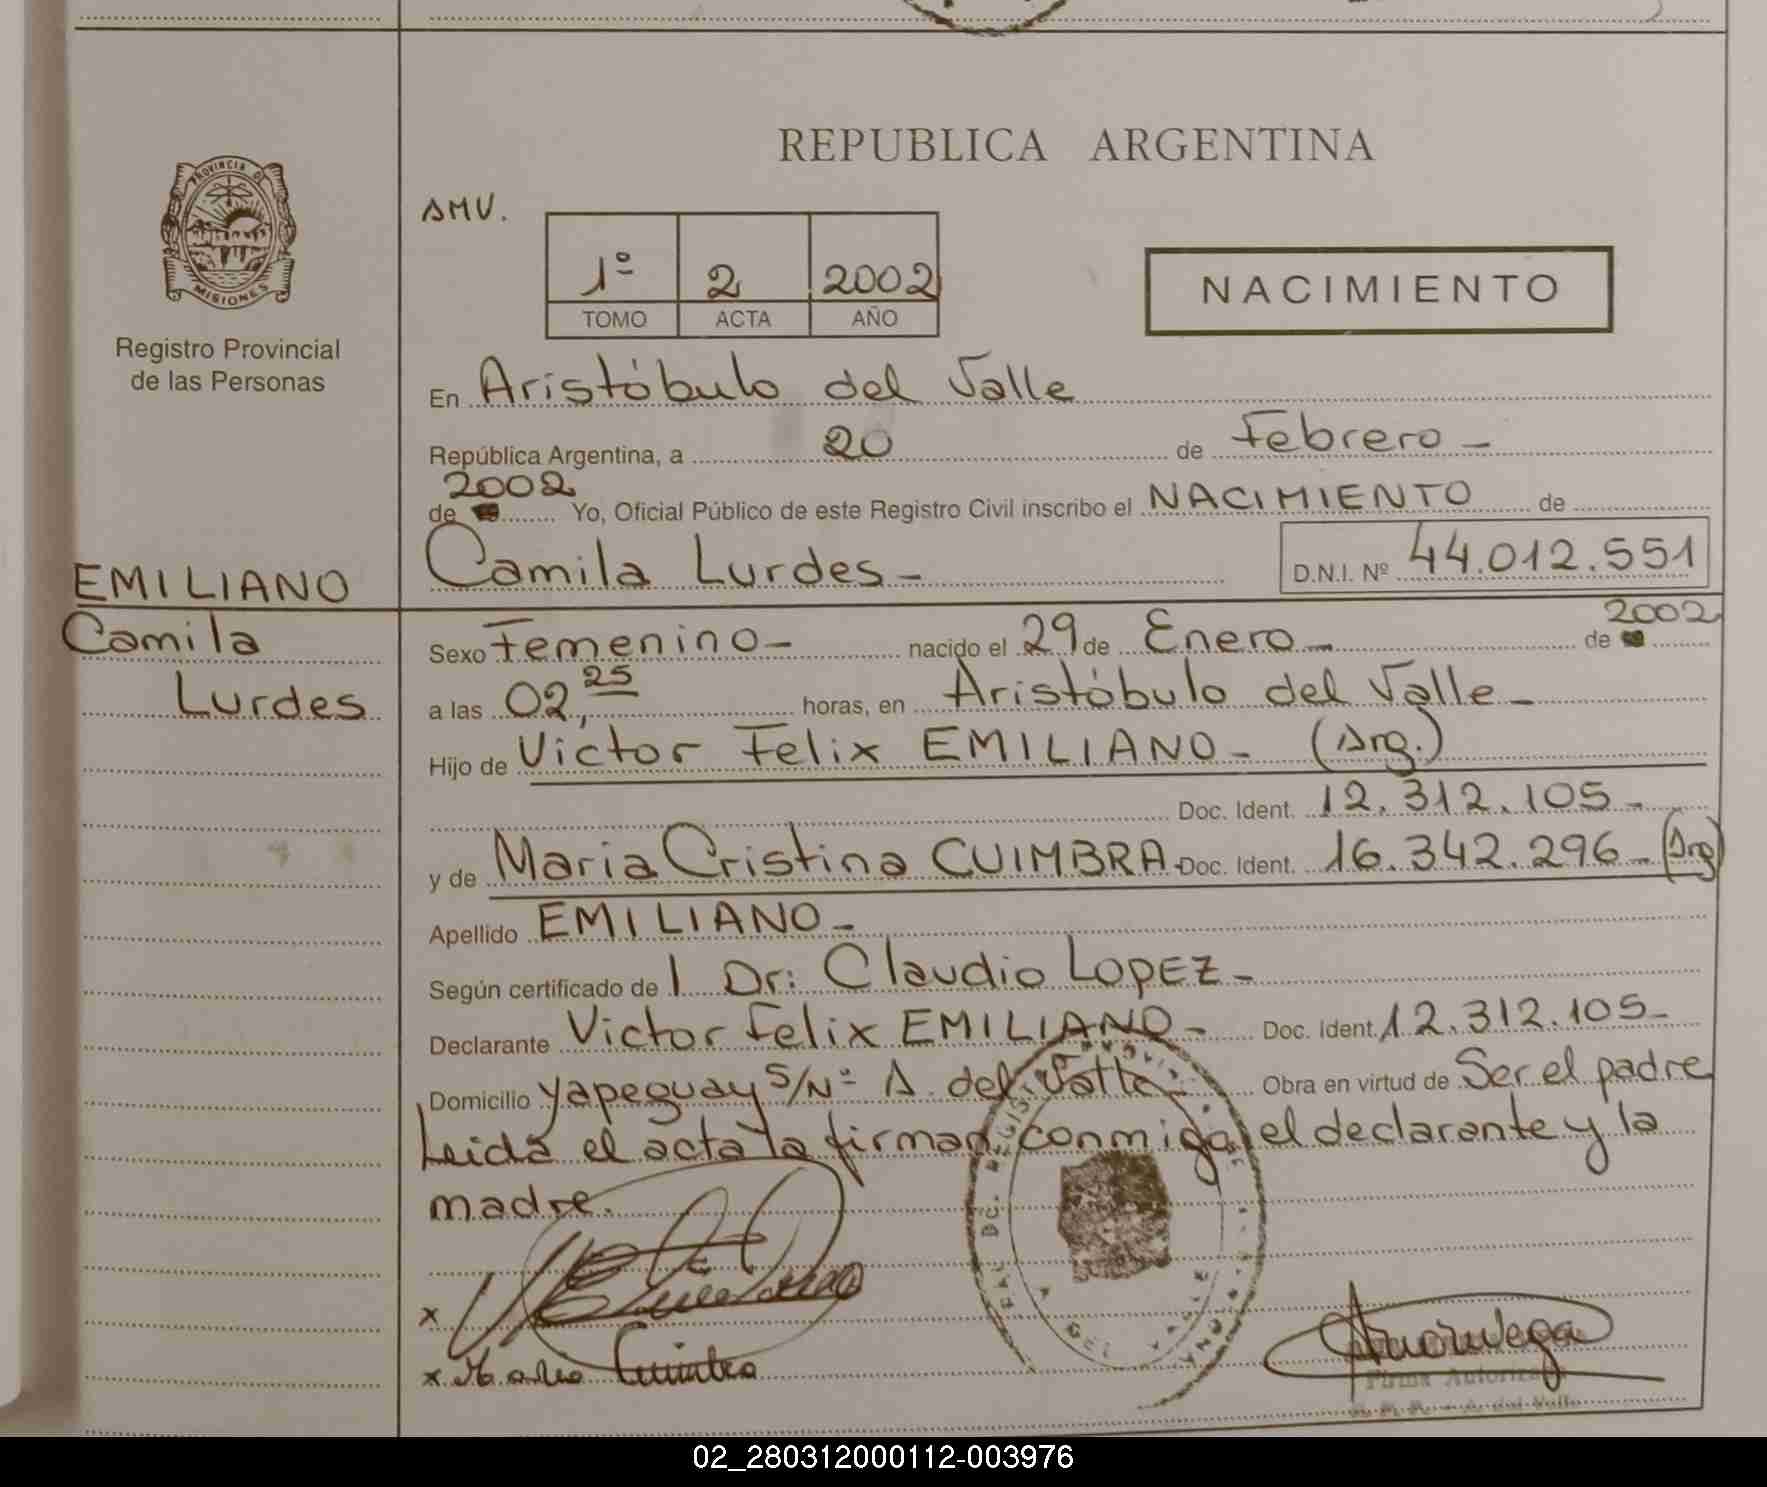 REPUBLICA ARGENTINA
PROVINCIA D
MISIONES
Registro Provincial
de las Personas
AMV.
1º 2 2002
TOMO ACTA AÑO
NACIMIENTO
En Aristóbulo del Valle
República Argentina, a 20 de Febrero -
2002
de Yo, Oficial Público de este Registro Civil inscribo el NACIMIENTO de
Camila Lurdes - D.N.I. Nº 44.012.551
EMILIANO
Camila
Lurdes
2002
Sexo Femenino - nacido el 29 de Enero - de
a las 02,25 horas, en Aristóbulo del Valle -
Hijo de Victor Felix EMILIANO - (Arg.)
Doc. Ident. 12.312.105 -
y de Maria Cristina CUIMBRA - Doc. Ident. 16.342.296 - (Arg)
Apellido EMILIANO -
Según certificado de l Dr: Claudio LOPEZ -
Declarante Victor Felix EMILIANO - Doc. Ident. 12.312.105 -
Domicilio Yapeguay S/Nº A. del Valle - Obra en virtud de Ser el padre
Leida el acta la firman conmigo el declarante y la
madre.
x
x
Firma Autoriza
A. del Valle
02_280312000112-003976